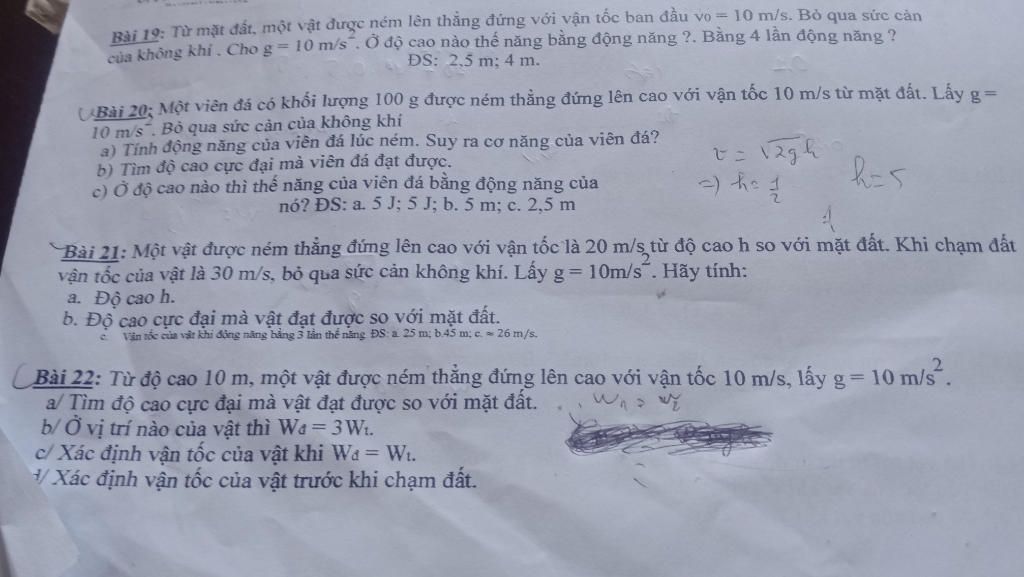 Bài 19: Từ mặt đất, một vật được ném lên thẳng đứng với vận tốc ban đầu v₀ = 10 m/s. Bỏ qua sức cản
của không khí . Cho g = 10 m/s². Ở độ cao nào thế năng bằng động năng ?. Bằng 4 lần động năng ?
ĐS: 2,5 m; 4 m.
Bài 20: Một viên đá có khối lượng 100 g được ném thẳng đứng lên cao với vận tốc 10 m/s từ mặt đất. Lấy g =
10 m/s². Bỏ qua sức cản của không khí
a) Tính động năng của viên đá lúc ném. Suy ra cơ năng của viên đá?
b) Tìm độ cao cực đại mà viên đá đạt được.
c) Ở độ cao nào thì thế năng của viên đá bằng động năng của
nó? ĐS: a. 5 J; 5 J; b. 5 m; c. 2,5 m
v = √2gh
=) h = 1/2
h = 5
Bài 21: Một vật được ném thẳng đứng lên cao với vận tốc là 20 m/s từ độ cao h so với mặt đất. Khi chạm đất
vận tốc của vật là 30 m/s, bỏ qua sức cản không khí. Lấy g = 10m/s². Hãy tính:
a. Độ cao h.
b. Độ cao cực đại mà vật đạt được so với mặt đất.
c. Vận tốc của vật khi động năng bằng 3 lần thế năng ĐS: a. 25 m; b.45 m; c. ≈ 26 m/s.
Bài 22: Từ độ cao 10 m, một vật được ném thẳng đứng lên cao với vận tốc 10 m/s, lấy g = 10 m/s².
a/ Tìm độ cao cực đại mà vật đạt được so với mặt đất.
b/ Ở vị trí nào của vật thì Wđ = 3Wt.
c/ Xác định vận tốc của vật khi Wđ = Wt.
d/ Xác định vận tốc của vật trước khi chạm đất.